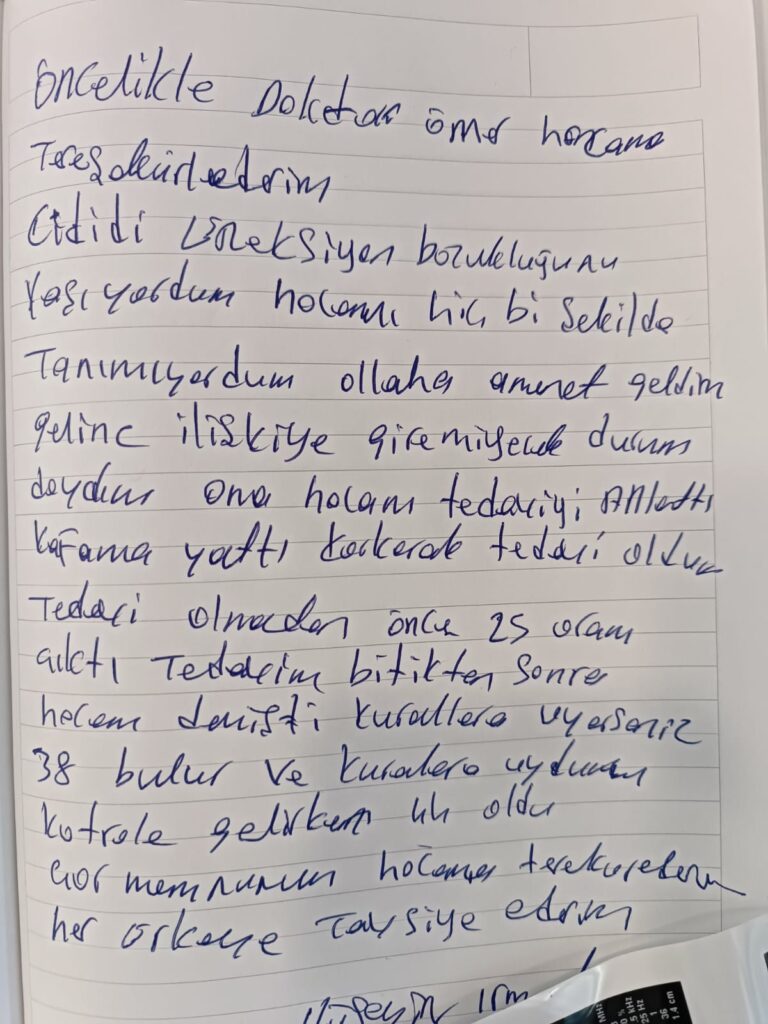 öncelikle Doketor ömer hocama
Tereşekürlederim
Cididi Lireksiyon bozukluğunu
Yaşıyordum hocamı hiç bi Şekilde
Tanımıyordum allaha amenet geldim
gelinc ilişkiye giremiyecek durum
daydım ama hocam tedaviyi Anlattı
kafama yattı korkarak tedavi oldum
Tedavi olmadan önce 25 oram
çıktı Tedavim bitikten sonra
hocam demişti kurallara uyarsanız
38 bulur ve kuralara uydum
kotrole gelirken oldu
çok memnunum hocama
her örkeye Tavsiye ederim
MHz
%
5 kHz
25 Hz
1
36
1.4 cm